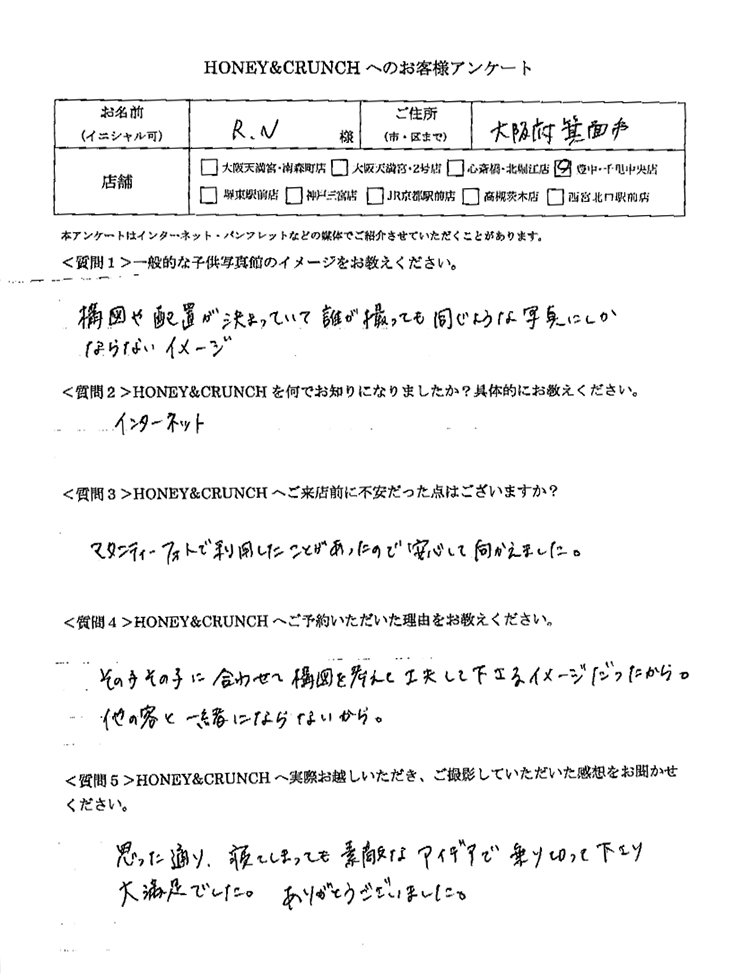 HONEY&CRUNCH へのお客様アンケート
お名前
(イニシャル可)
R.N 様
ご住所
(市・区まで)
大阪府箕面市
店舗
□大阪天満宮・南森町店 □大阪天満宮・2号店 □心斎橋・北堀江店 □豊中・千里中央店
□堺東駅前店 □神戸三宮店 □JR京都駅前店 □高槻茨木店 □西宮北口駅前店
本アンケートはインターネット・パンフレットなどの媒体でご紹介させていただくことがあります。
<質問1>一般的な子供写真館のイメージをお教えください。
構図や配置が決まっていて誰が撮っても同じような写真にしか
ならないイメージ
<質問2>HONEY&CRUNCH を何でお知りになりましたか?具体的にお教えください。
インターネット
<質問3>HONEY&CRUNCH へご来店前に不安だった点はございますか?
マタニティーフォトで利用したことがあったので安心して向かえました。
<質問4>HONEY&CRUNCH へご予約いただいた理由をお教えください。
その子その子に合わせて構図を考えて工夫して下さるイメージだったから。
他の客と一緒にならないから。
<質問5>HONEY&CRUNCH へ実際お越しいただき、ご撮影していただいた感想をお聞かせ
ください。
思った通り、寝てしまっても素敵なアイデアで乗り切って下さり
大満足でした。ありがとうございました。